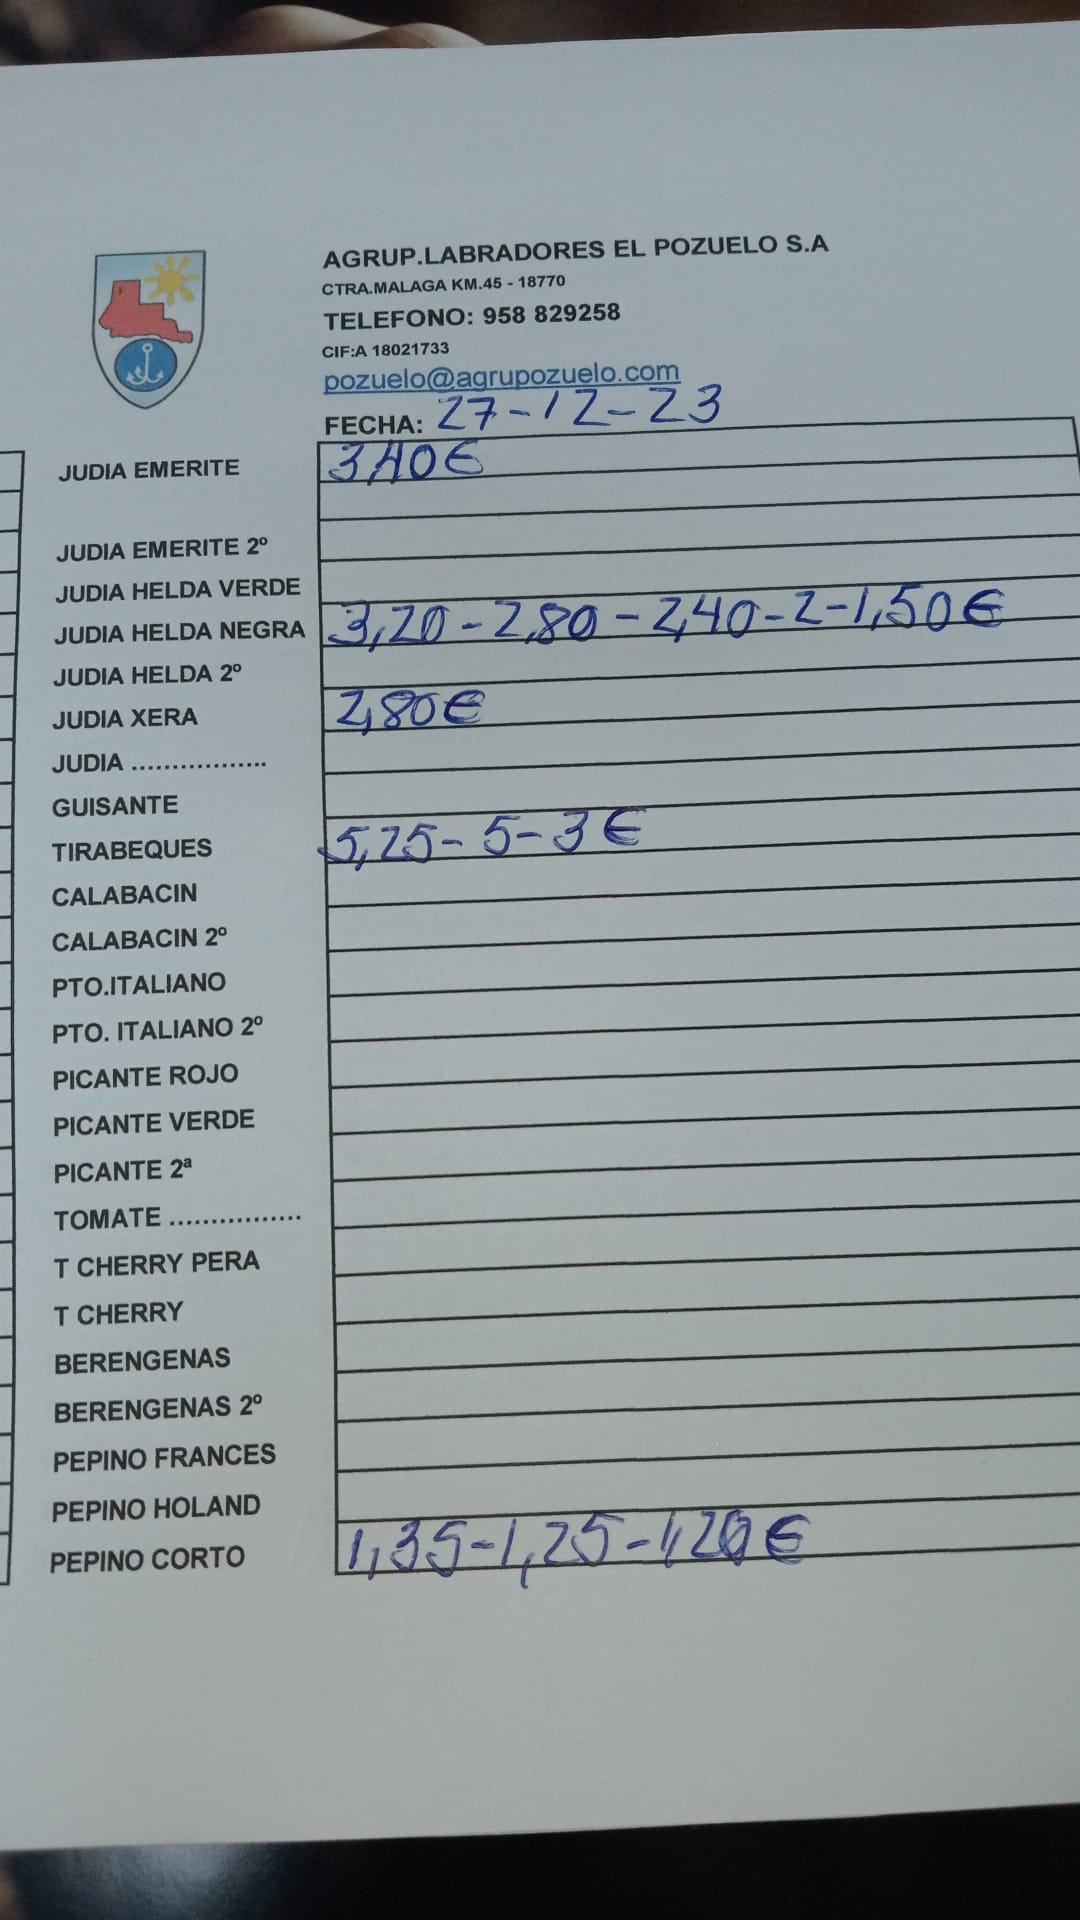 AGRUP.LABRADORES EL POZUELO S.A
CTRA.MALAGA KM.45 - 18770
TELEFONO: 958 829258
CIF:A 18021733
pozuelo@agrupozuelo.com
FECHA: 27-12-23
JUDIA EMERITE 3,40€
JUDIA EMERITE 2º
JUDIA HELDA VERDE
JUDIA HELDA NEGRA 3,20-2,80-2,40-2-1,50€
JUDIA HELDA 2º
JUDIA XERA 2,80€
JUDIA .................
GUISANTE
TIRABEQUES 5,25-5-3€
CALABACIN
CALABACIN 2º
PTO.ITALIANO
PTO. ITALIANO 2º
PICANTE ROJO
PICANTE VERDE
PICANTE 2ª
TOMATE ................
T CHERRY PERA
T CHERRY
BERENGENAS
BERENGENAS 2º
PEPINO FRANCES
PEPINO HOLAND
PEPINO CORTO 1,35-1,25-1,20€